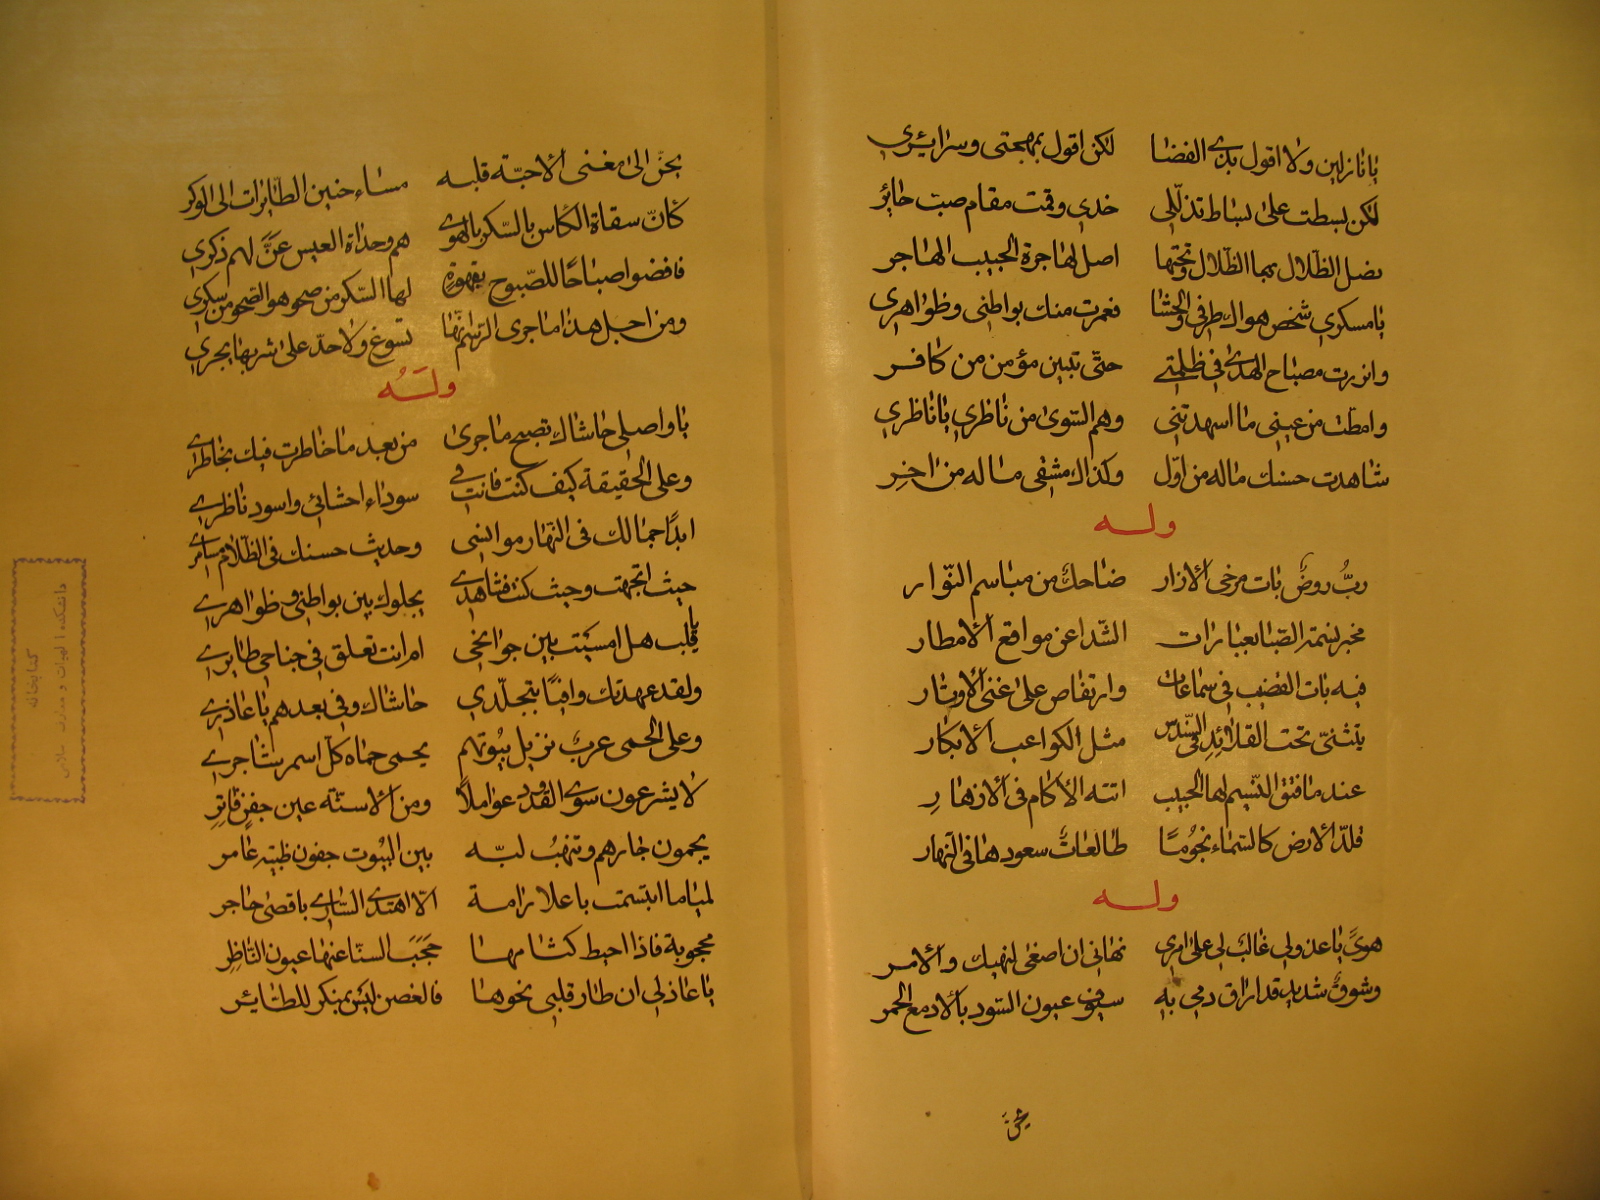 يا نازلين ولا اقول بذي الفضا لكن اقول بمهجتي وسرايري
لكن بسطت على بساط تذللي خدي وقمت مقام صب حاير
بضل الظلال بها الظلال وتحتها اصل لهاجرة الحبيب الهاجر
يا مسكري شخص هواك طرفي والحشا فعمرت منك بواطني وظواهري
وانرت مصباح الهدى في ظلمتي حتى تبين مؤمن من كافر
وامطت من عيني ما اسهدتني وهم السوى من ناظري يا ناظري
شاهدت حسنك ماله من اول وكذاك عشقي ما له من اخر
وله
رب روض بات مرخى الازار ضاحك من مباسم النوار
مخبر نسمة الصبا بعبارات الشذا عن مواقع الامطار
فيه بات القضيب في سماعات وارتقاص على غنى الاوتار
يتثنى تحت القلائد في السندس مثل الكواعب الابكار
عند ما فتق النسيم لها الجيب اتته الاكام في الازهار
قلد الارض كالسماء نجوما طالعات سعودها في النهار
وله
هوى يا عذولي غالب لي على امري نهاني ان اصغى لنهيك والامر
وشوق شديد قد اراق دمي به سيوف عيون السود بالادمع الحمر
يحن
يحن الى مغنى الاحبة قلبه مساء حنين الطايرات الى الوكر
كان سقاة الكاس بالسكر بالهوى هم وحداة العيس عن لهم ذكري
فافضوا صباحا للصبوح بقهوة لها السكر من صحو هو الصحو من سكري
ومن اجل هذا ما جرى الرسم انها تسوغ ولا حد على شربها يجري
وله
يا واصلي حاشاك تصبح ما جرى من بعد ما خاطرت فيك بخاطري
وعلى الحقيقة كيف كنت فانت في سوداء احشائي واسود ناظري
ابدا جمالك في النهار موانسي وحديث حسنك في الظلام مسامري
حيث اتجهت وحيث كنت فشاهدي يجلوك بين بواطني وظواهري
يا قلب هل امسيت بين جوانحي ام انت تعلق في جناحي طايري
ولقد عهدتك وافيا بتجلدي حاشاك وفي بعدهم يا غادري
وعلى الحمى عرب نزيل بيوتهم يحمى حماه كل اسمر شاجري
لا يشرعون سوى القدود عواملا ومن الاسنة عين جفن فاتر
يحمون جارهم وتنهب لبه بين البيوت جفون ظبية عامر
لمياء ما ابتسمت باعلا رامة الا اهتدى الساري باقصى حاجر
محجوبة فاذا احيط كثامها حجب السنا عنها عيون الناظر
يا عاذلي ان طار قلبي نحوها فالغصن ليس بمنكر للطائر
كتابخانه
دانشكده الهيات و معارف اسلامى